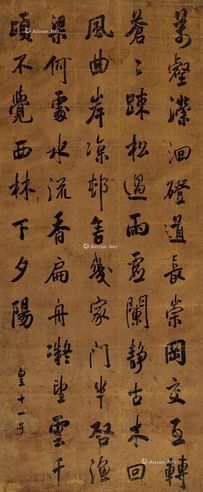 萬壑瀠洄磴道長崇岡交互轉
蒼〻踈松過雨虛闌靜古木回
風曲岸凉邨舍幾家門半啓漁
梁何處水流香扁舟凝望雲千
頃不覺西林下夕陽
皇十一子
Artron.Net